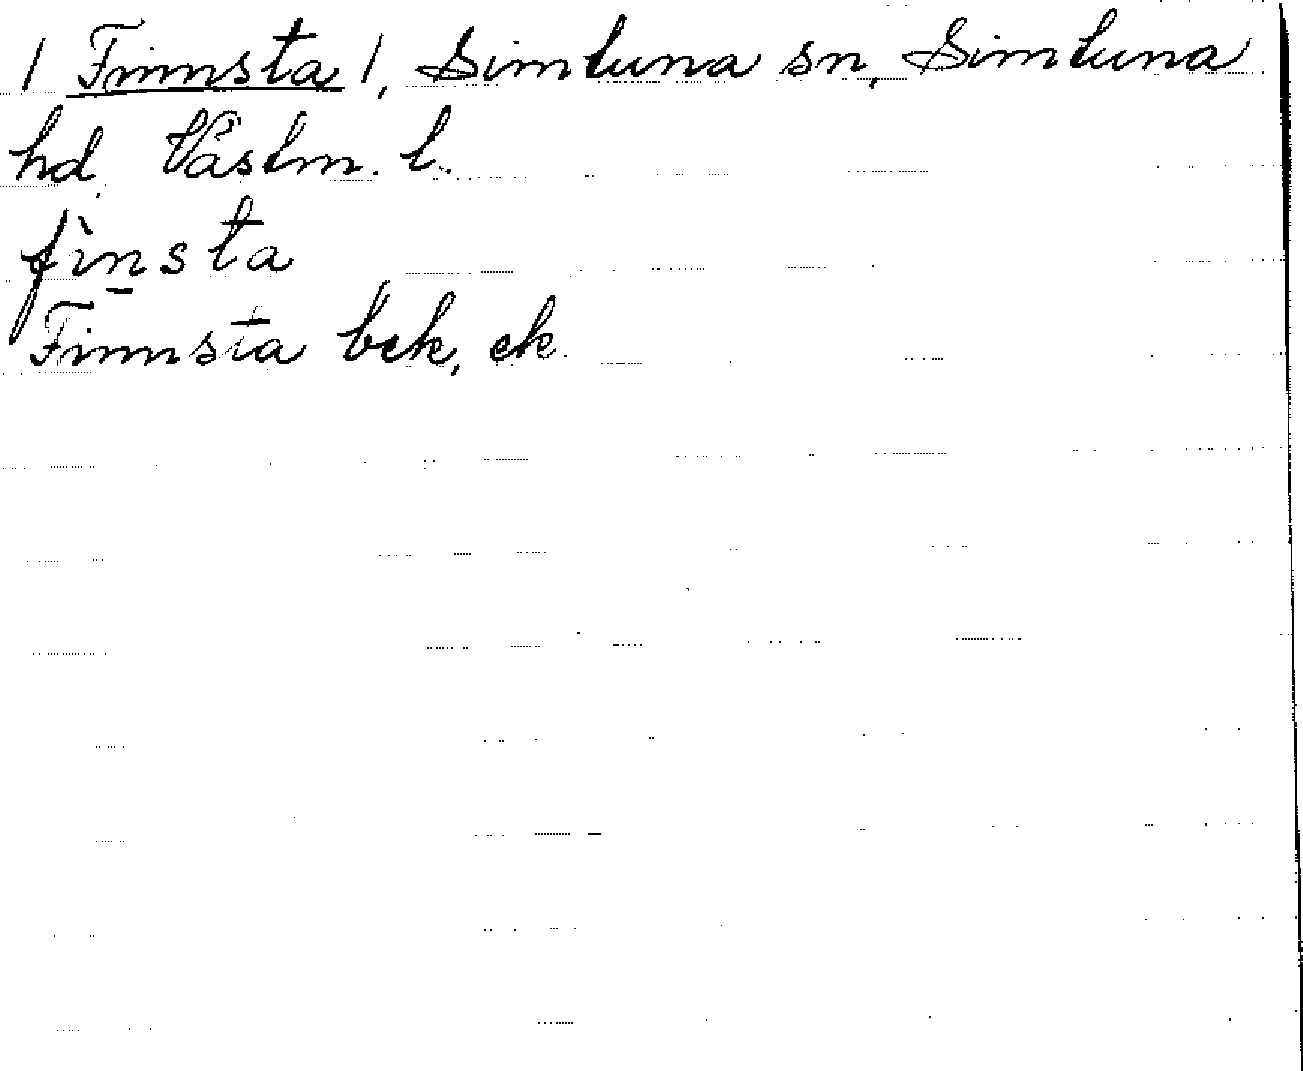 / Finnsta /, Simtuna sn, Simtuna
hd. Västm. l.
fìn̠sta
Finnsta bek, ek.